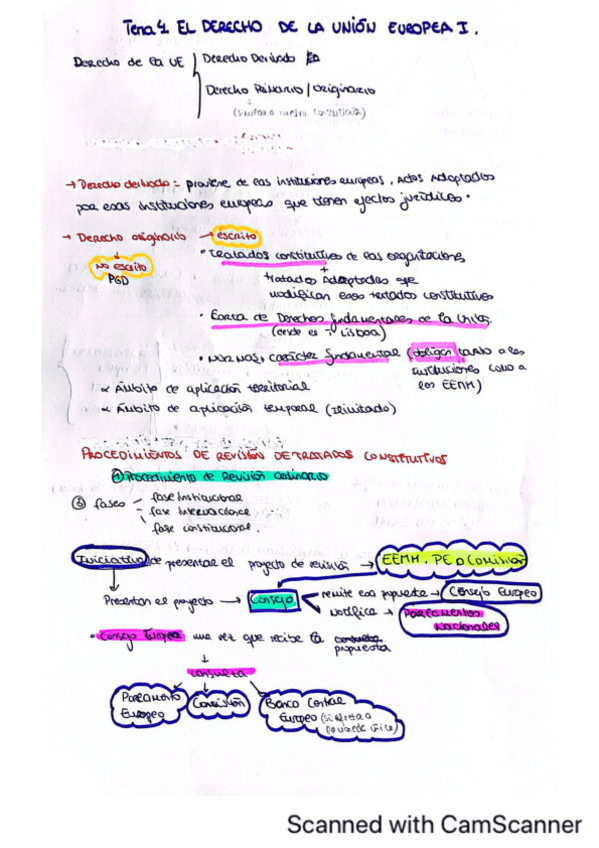 Tema 4. EL DERECHO DE LA UNIÓN EUROPEA I.
Derecho de la UE
Derecho Derivado
Derecho Primario / originario
→ Derecho derivado = proviene de las instituciones europeas, Actos Adaptados
por esas instituciones europeas que tienen efectos jurídicos.
→ Derecho originario → escrito
No escrito
PGD
• Tratados constitutivos de las organizaciones
+
tratados Adoptados que
modifican esos tratados constitutivos
• Carta de Derechos fundamentales de la
(desde el → Lisboa)
• Normas, carácter fundamental (obligan tanto a las
instituciones como a
los EEMM)
Ámbito de aplicación territorial
Ámbito de aplicación temporal (Ilimitado)
PROCEDIMIENTOS DE REVISIÓN DE TRATADOS CONSTITUTIVOS
① Procedimiento de Revisión ordinario
③ fases
fase institucional
fase
fase constitucional.
Iniciativa de presentar el proyecto de revisión → EEMM, PE o Comisión
Presentan el proyecto → Consejo
remite esa propuesta → Consejo Europeo
Notifica → Parlamentos
Nacionales
• Consejo Europeo una vez que recibe la
propuesta
↓
consulta
Parlamento
Europeo
Comisión
Banco Central
Europeo (si afecta a
Scanned with CamScanner